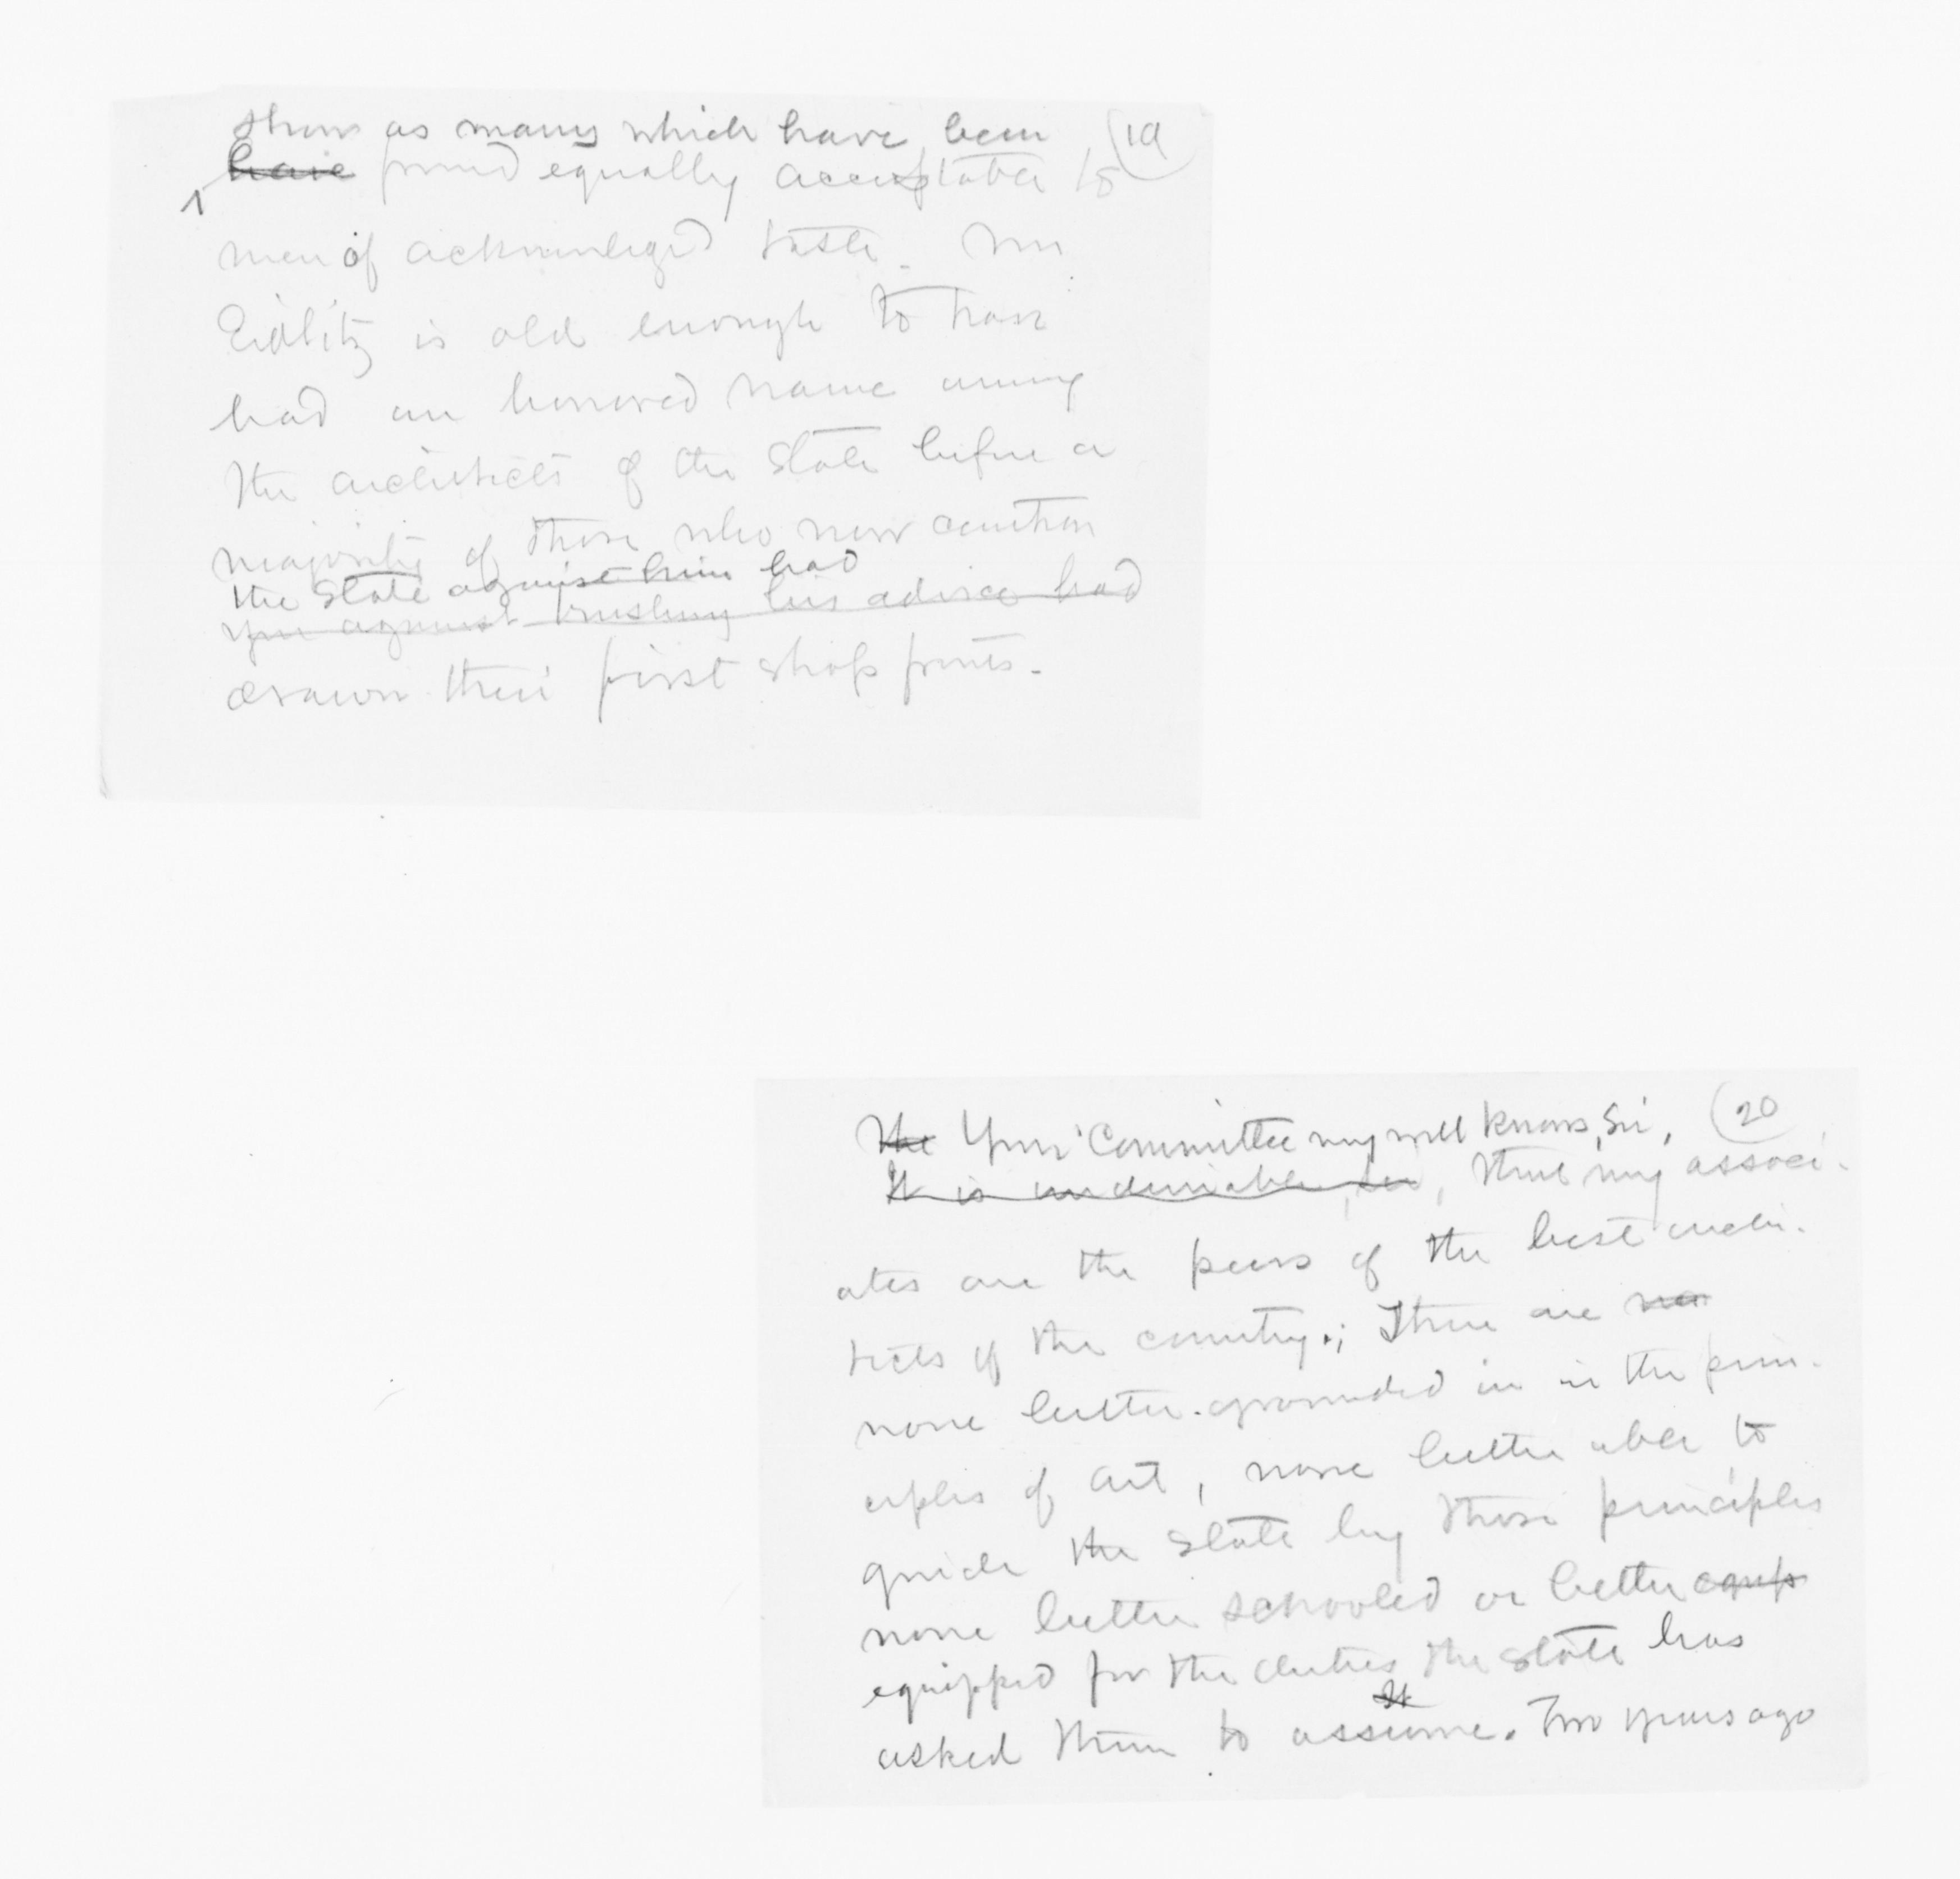 19
show as many which have been
have found equally acceptable to
men of acknowleged taste. Mr.
Eidlitz is old enough to have
had an honored name among
the architects of the State before a
majority of those who now caution
the State against him had
you against trusting his advice had
drawn their first shop fronts.
20
The Your Committee may well know, Sir,
It is undeniable, Sir, that my associ-
ates are the peers of the best archi-
tects of the country; There are no
none better grounded in in the prin-
ciples of art, none better able to
guide the State by those principles
none better schooled or better equip
equipped for the duties the State has
It
asked them to assume. Two years ago